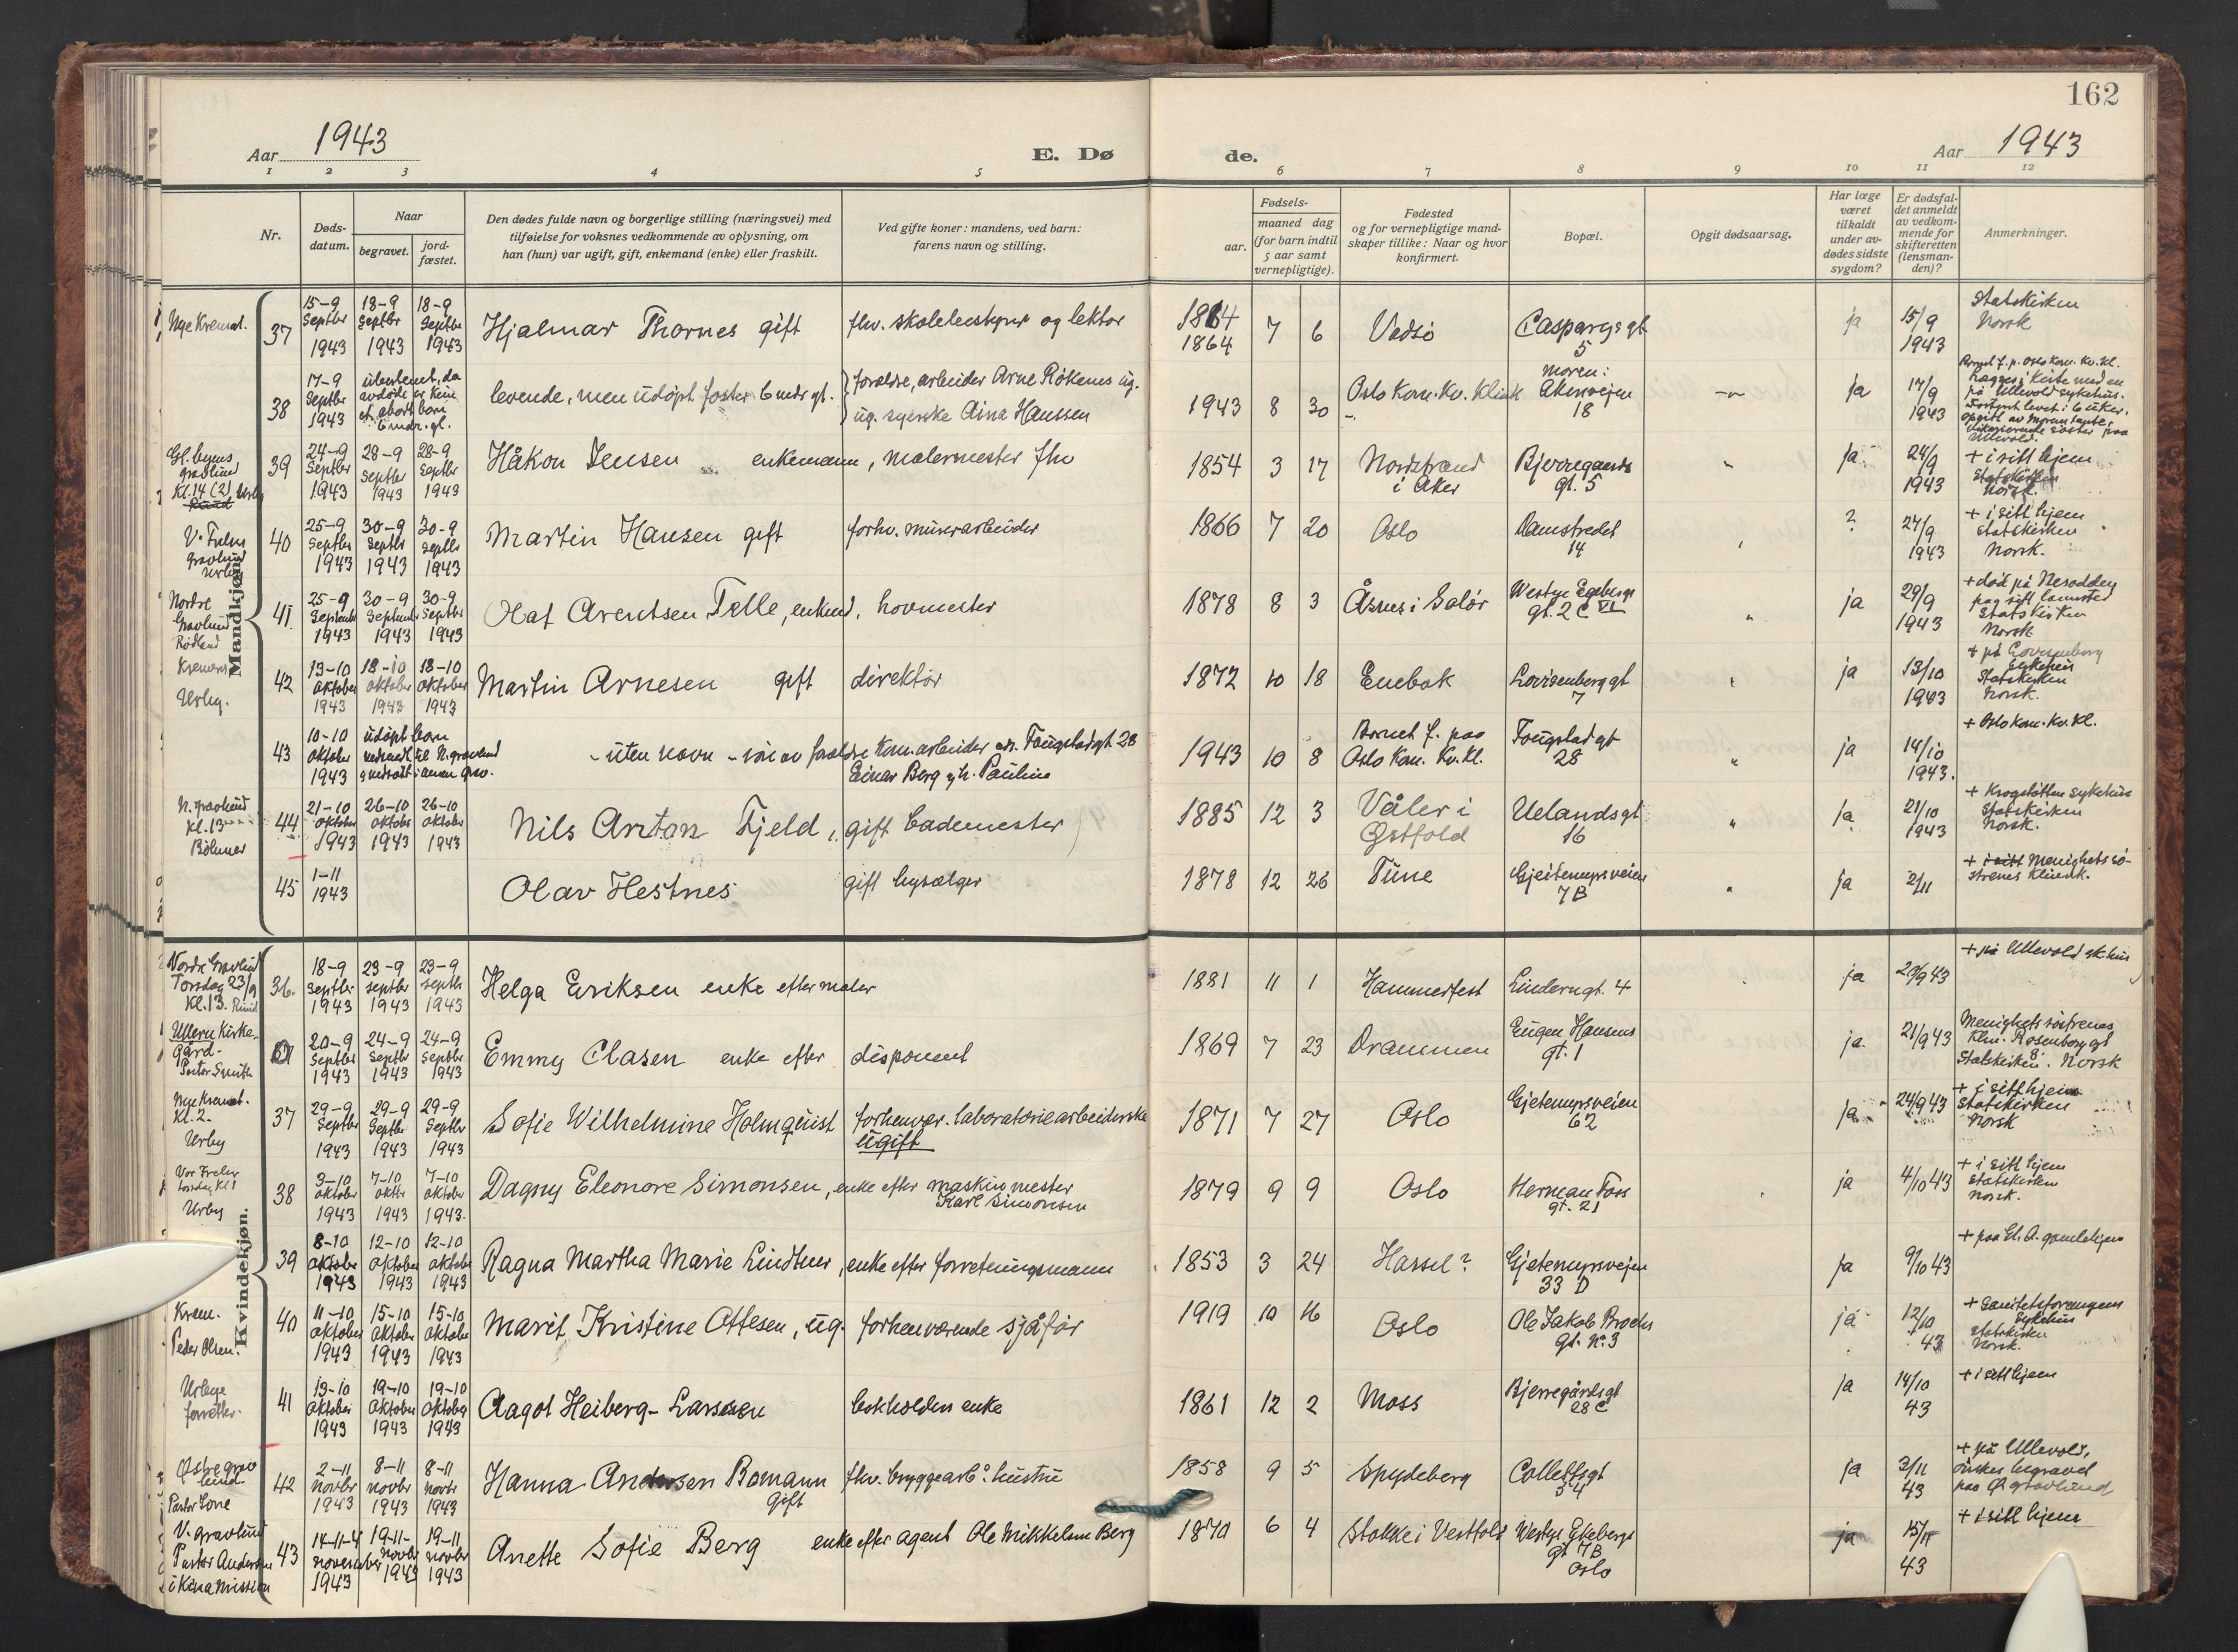 162
Aar 1943 E. Dø de. Aar 1943
1 2 3 4 5 6 7 8 9 10 11 12
Nr.
Døds-
datum.
Naar
begravet.
jord-
fæstet.
Den dødes fulde navn og borgerlige stilling (næringsvei) med
tilføielse for voksnes vedkommende av oplysning, om
han (hun) var ugift, gift, enkemand (enke) eller fraskilt.
Ved gifte koner: mandens, ved barn:
farens navn og stilling.
Fødsels-
aar.
maaned dag
(for barn indtil
5 aar samt
vernepligtige).
Fødested
og for vernepligtige mand-
skaper tillike: Naar og hvor
konfirmert.
Bopæl.
Opgit dødsaarsag.
Har læge
været
tilkaldt
under av-
dødes sidste
sygdom?
Er dødsfal-
det anmeldt
av vedkom-
mende for
skifteretten
(lensman-
den)?
Anmerkninger.
Mandkjøn.
Nye Kremat.
37
15-9 18-9 18-9
Septbr Septbr Septbr
1943 1943 1943
Hjalmar Thornes gift
fhv. skolebestyrer og lektor
1864 7 6
Vadsö
5
ja
15/9
1943
Statskirken
Norsk
38
17-9
Septbr
1943
levende, men udöpt foster 6 mdr gl.
foreldre, arbeider Arne Rökenes ug.
ug. syerske Aina Hanssen
1943 8 30
Oslo Kom. Kv. Klinik
moren:
Akersveien
18
ja
17/9
1943
Gl. byens
gravlund
Kl. 14 (2) Urby
39
24-9 28-9 28-9
Septbr Septbr Septbr
1943 1943 1943
Håkon Jensen enkemann, malermester fhv
1854 3 17
Nordstrand
i Aker
Bjerregaards
gt. 5
ja
24/9
1943
+ i sitt hjem
Statskirken
Norsk.
V. Frelsers
gravlund
Urby
40
25-9 30-9 30-9
Septbr Septbr Septbr
1943 1943 1943
Martin Hansen gift
forhv. murerarbeider
1866 7 20
Oslo
Damstredet
14
?
27/9
1943
+ i sitt hjem
Statskirken
Norsk.
Nordre
Gravlund
Rödland
41
25-9 30-9 30-9
Septembr Septembr Septbr
1943 1943 1943
Olaf Arentsen Telle, enkemd, hovmester
1878 8 3
Åsnes i Solör
Westye Egebergs
gt. 2 C VI
ja
29/9
1943
+ död på Nesodden
paa sitt landsted
Statskirken
Norsk
Urby.
42
13-10 18-10 18-10
Oktober Oktober Oktober
1943 1943 1943
Martin Arnesen gift direktör
1872 10 18
Enebak
Lovisenberg gt
7
ja
13/10
1943
+ på Lovisenberg
Sykehus
Statskirken
Norsk.
43
10-10
Oktober
1943
udöpt barn
- uten navn - sön av
Einar Berg
1943 10 8
Barnet f. paa
Oslo Kom. Kv. Kl.
Fougstad gt
28
ja
14/10
1943.
+ Oslo kom. Kv. Kl.
N. gravlund
Kl. 13
Böhmer
44
21-10 26-10 26-10
Oktober Oktober Oktober
1943 1943 1943
Nils Anton Fjeld, gift bademester
1885 12 3
Våler i
Østfold
Uelandsgt
16
ja
21/10
1943
+ Krogstötten sykehus
Statskirken
Norsk.
45
1-11
1943
Olav Hestnes
gift bysælger
1878 12 26
Tune
Gjeitemyrsveien
7 B
ja
2/11
+ i sitt Menighetssö-
strenes Klinik.
Kvindekjøn.
Nordre Gravlund
Torsdag 23/9
Kl. 13.
36.
18-9 23-9 23-9
Septbr septbr septbr
1943 1943 1943
Helga Eriksen enke efter maler
1881 11 1
Hammerfest
Linderngt. 4
ja
+ på Ullevold sk.hus
Ullern Kirke-
gård
Pastor Smith
20-9 24-9 24-9
Septbr Septbr Septbr
1943 1943 1943
Emmy Clasen enke efter disponent
1869 7 23
Drammen
Eugen Hansens
gt. 1
ja.
21/9 43
Menighetssöstrenes
Klin. Rosenborg gt
8.
Statskirken. Norsk
Nye Kremat.
Kl. 2.
Urby
37
29-9 29-9 29-9
Septbr Septbr Septbr
1943 1943 1943
Sofie Wilhelmine Holmquist
forhenvær. laboratoriearbeiderske
ugift
1871 7 27
Oslo
Gjetemyrsveien
62
ja
24/9 43
+ i sitt hjem
Statskirken
Norsk
Vor Frelser
Urby
38
3-10 7-10 7-10
Oktober Oktbr Oktober
1943 1943 1943.
Dagny Eleonore Simonsen, enke efter maskinmester
Karl Simonsen
1879 9 9
Oslo
Herman Foss
gt. 21
ja
4/10 43
+ i sitt hjem
Statskirken
Norsk.
39
8-10 12-10 12-10
Oktober Oktober Oktober
1943 1943 1943
Ragna Martha Marie Lindtner, enke efter forretningsmann
1853 3 24
Hassel?
Gjetemyrsveien
33 D
ja
9/10 43
Krem.
Peder Olsen.
40
11-10 15-10 15-10
Oktober Oktober Oktober
1943 1943 1943
Marit Kristine Ottesen, ug. forhenværende sjåför
1919 10 16
Oslo
Ole Jakob Brochs
gt. No. 3
ja
12/10
43
+ Sanitetsforeningens
Sykehus
Statskirken
Norsk.
Urbye
forretter.
41
13-10 19-10 19-10
Oktober Oktober Oktober
1943 1943 1943
Aagot Heiberg-Larssen
bokholders enke
1861 12 2
Moss
Bjerregårdsgt
28 C
ja
14/10
43
+ i sitt hjem
Østre grav
lund.
42
2-11 8-11 8-11
Novbr novbr novbr
1943 1943 1943
Hanna Andersen Bomann
gift
fhv. bryggearb.s hustru
1858 9 5
Spydeberg
Collettsgt
54
ja
3/11
43
+ på Ullevold,
önsker begravet
paa Ø. gravlund
V. gravlund
Pastor Andersen
i Kina Mission
43
14-11-4 19-11- 19-11
november novbr novbr
1943 1943 1943
Anette Sofie Berg enke efter agent Ole Mikkelsen Berg
1870 6 4
Stokke i Vestfold
Westye Egebergs
gt 7 B
Oslo
ja
15/11
43
+ i sitt hjem